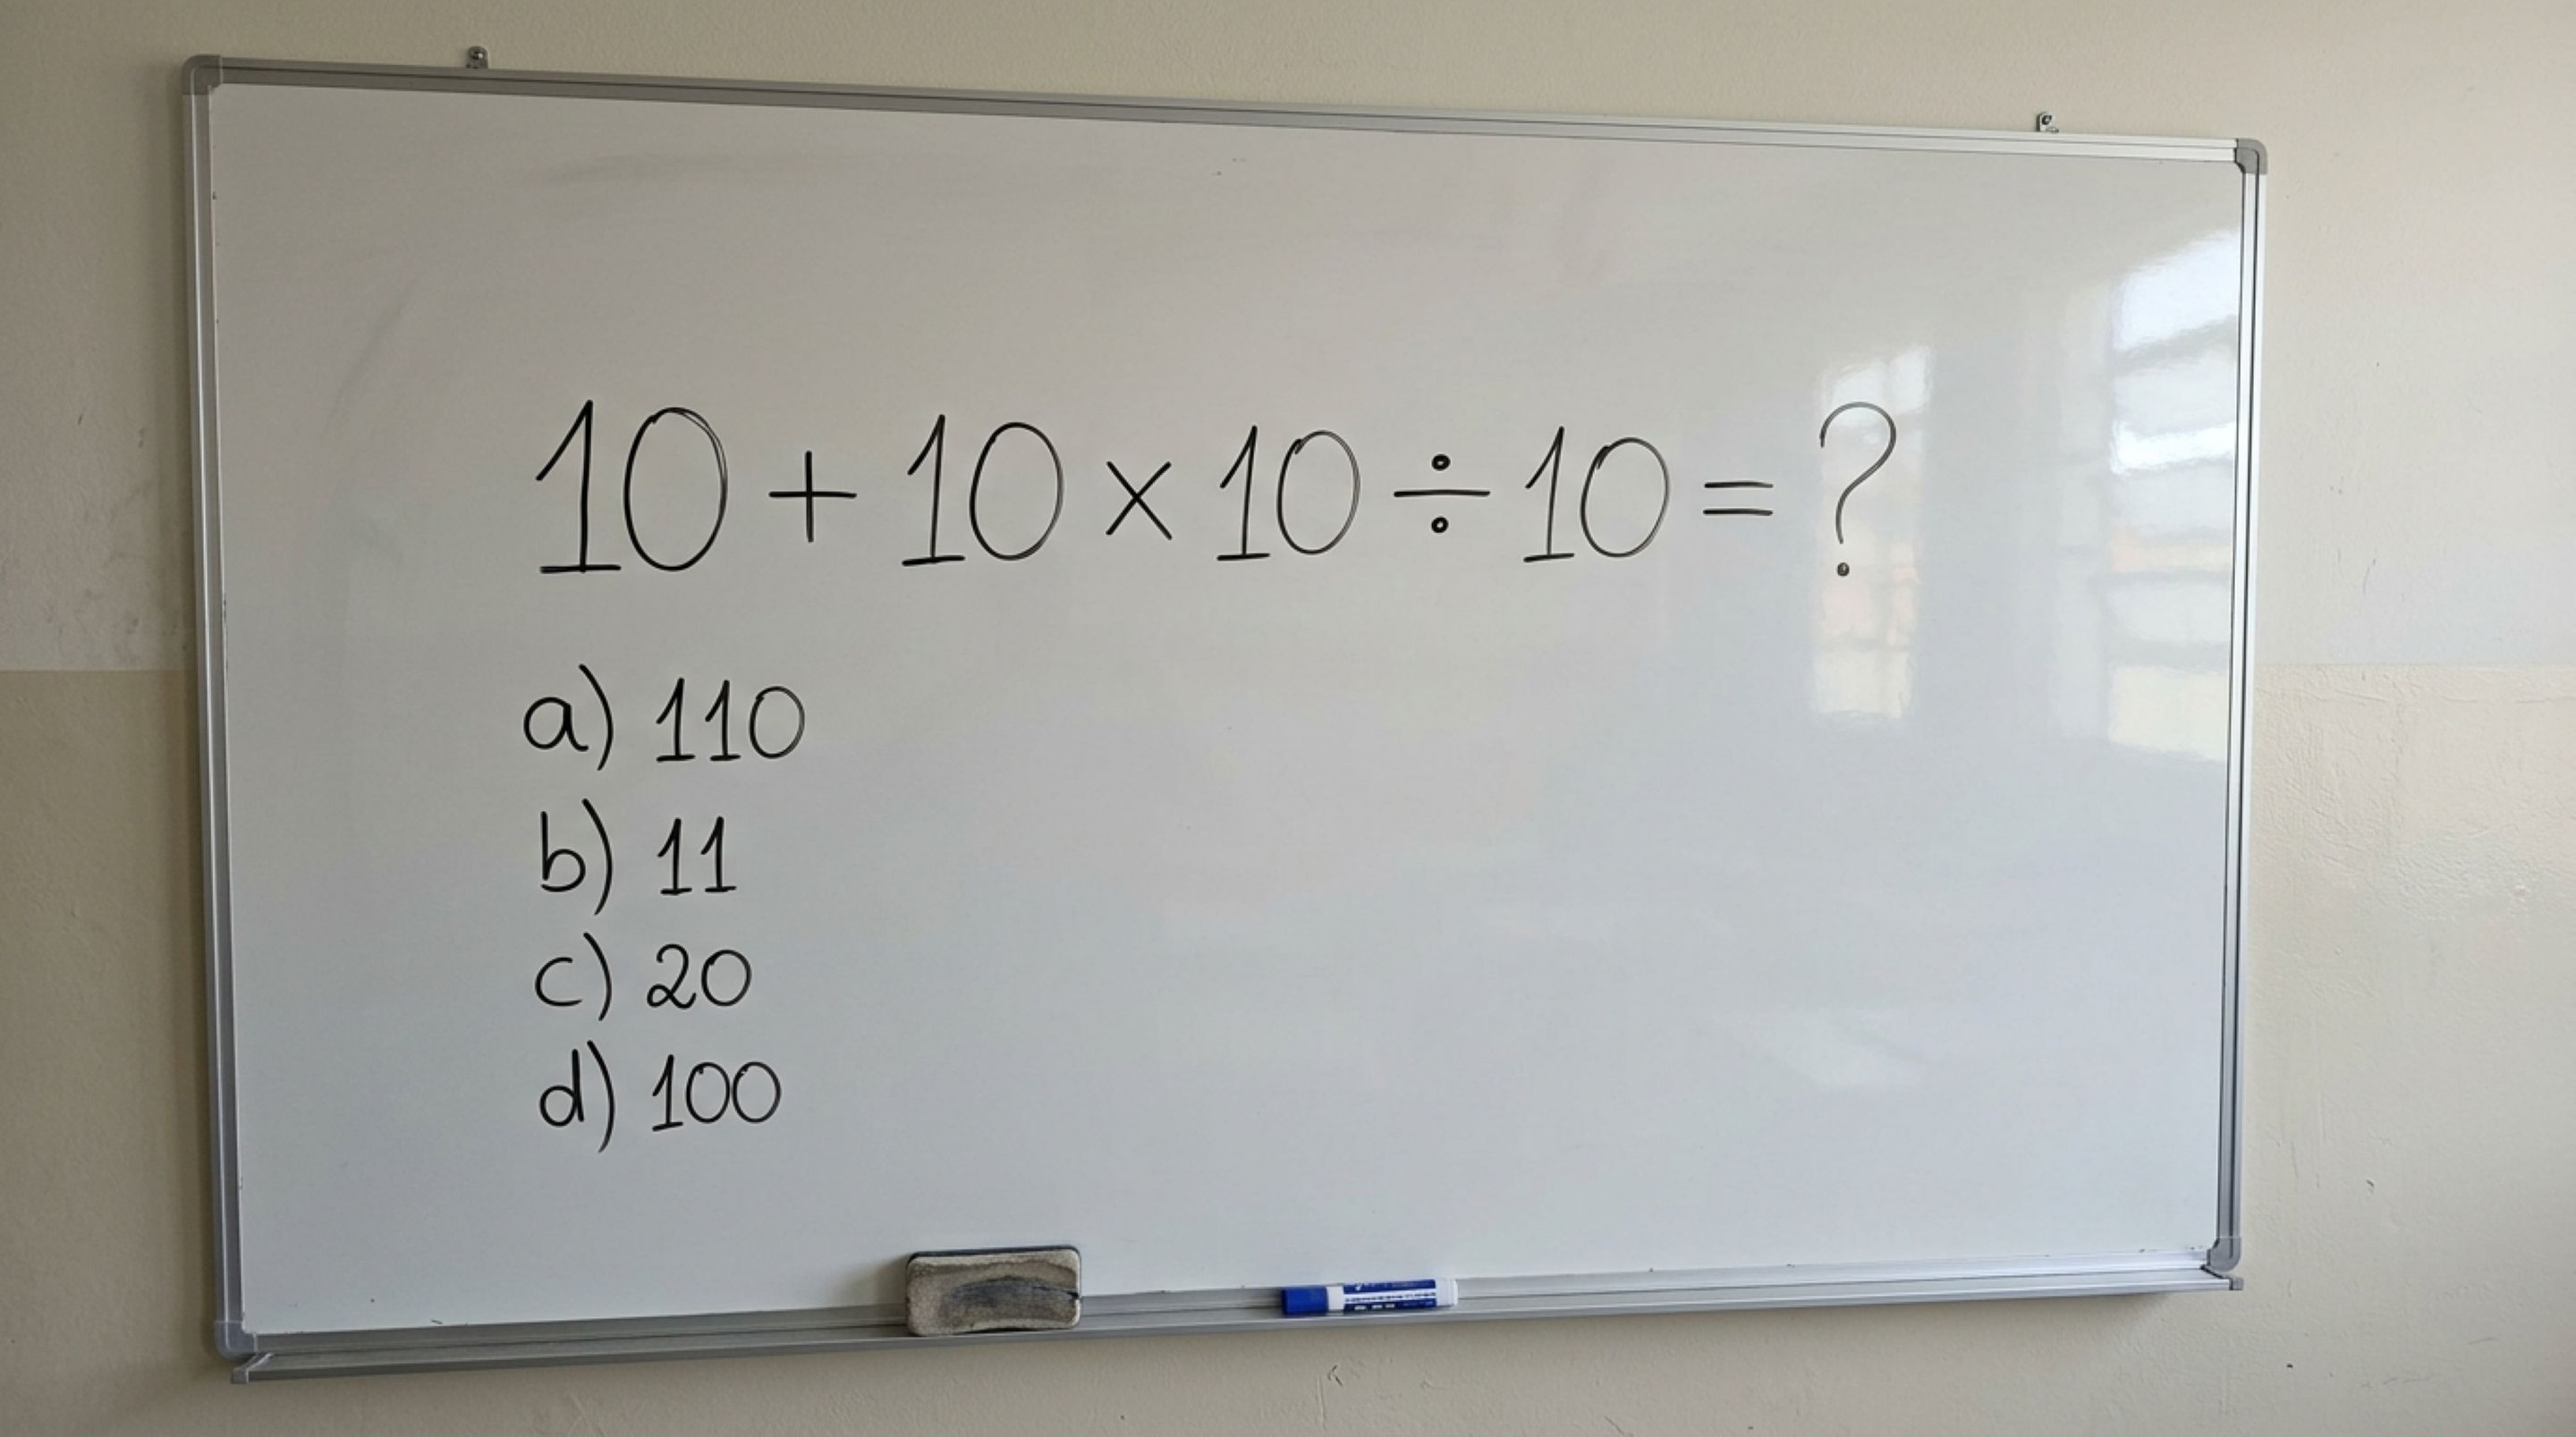 10 + 10 × 10 ÷ 10 = ?
a) 110
b) 11
c) 20
d) 100